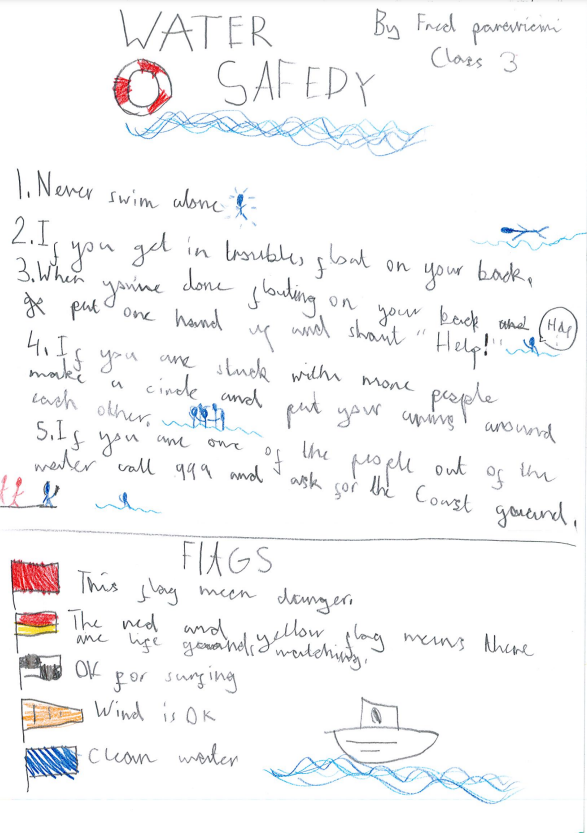 WATER
By Fred paravicini
Class 3
SAFEDY
1. Never swim alone
2. If you get in trouble, float on your back.
3. When you're done floating on your back and
put one hand up and shout "Help!"
Help
4. If you are stuck with more people
make a circle and put your arms around
each other.
5. If you are one of the people out of the
water call 999 and ask for the Coast guard.
FlAGS
This flag mean danger.
The red and yellow flag means there
are life guards watching.
OK for surfing
Wind is OK
Clean water